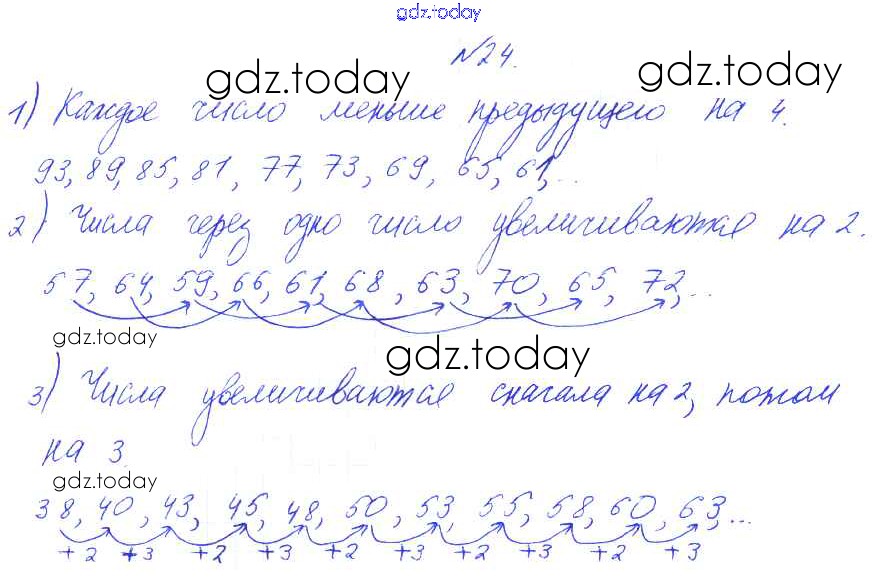 gdz.today
№24.
gdz.today gdz.today
1) Каждое число меньше предыдущего на 4.
93, 89, 85, 81, 77, 73, 69, 65, 61, ...
2) Числа через одно число увеличиваются на 2.
57, 64, 59, 66, 61, 68, 63, 70, 65, 72, ...
gdz.today gdz.today
3) Числа увеличиваются сначала на 2, потом
на 3.
gdz.today
38, 40, 43, 45, 48, 50, 53, 55, 58, 60, 63, ...
+2 +3 +2 +3 +2 +3 +2 +3 +2 +3